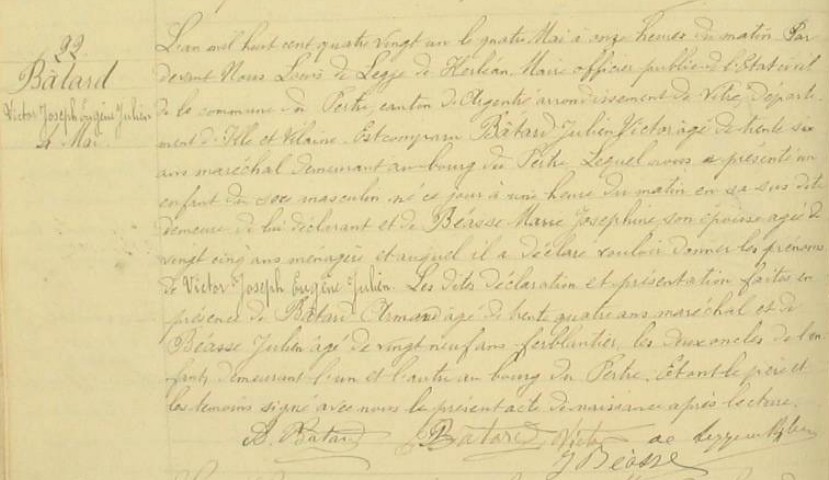 22
Bâtard
Victor Joseph Eugène Julien
4 Mai
L'an mil huit cent quatre vingt un le quatre Mai à onze heures du matin Par
devant Nous Louis de Legge de Kerléan, Maire officier public de l'Etat civil
de la commune du Pertre, canton de Argentré arrondissement de Vitré, Départe
ment d'Ille et Vilaine. Est comparu Bâtard Julien Victor âgé de trente six
ans maréchal demeurant au bourg du Pertre Lequel nous a présenté un
enfant du sexe masculin né ce jour à une heure du matin en sa sus dite
demeure de lui déclarant et de Béasse Marie Joséphine son épouse agée de
vingt cinq ans ménagère et auquel il a déclaré vouloir donner les prénoms
de Victor Joseph Eugène Julien. Les dites déclaration et présentation faites en
présence de Bâtard Armand âgé de trente quatre ans maréchal et de
Béasse Julien âgé de vingt neuf ans ferblantier, les deux oncles de l'en
fant, demeurant l'un et l'autre au bourg du Pertre. Et ont le père et
les temoins signé avec nous le présent acte de naissance après lecture.
A. Bâtard J Batard Victor de Legge
J Béasse